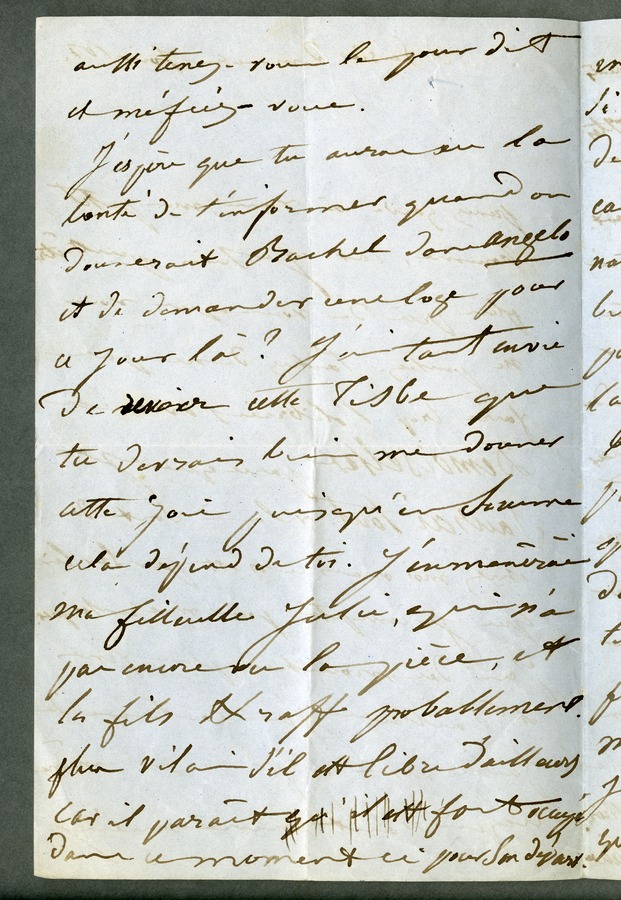 aussi tenez-vous le pour dit
et méfiez-vous.
J'espère que tu auras eu la
bonté de t'informer quand on
donnerait Rachel dans Angelo
et de demander une loge pour
ce jour là? J'ai tant envie
de revoir cette Tisbe que
tu devrais bien me donner
cette joie puisqu'en somme
cela dépend de toi. J'emmènerai
ma filleule Julie, qui n'a
pas encore vu la pièce, et
le fils Kraff probablement.
plus vilain s'il est libre d'ailleurs
car il paraît qu'il est fort occupé
dans ce moment ci pour son départ.